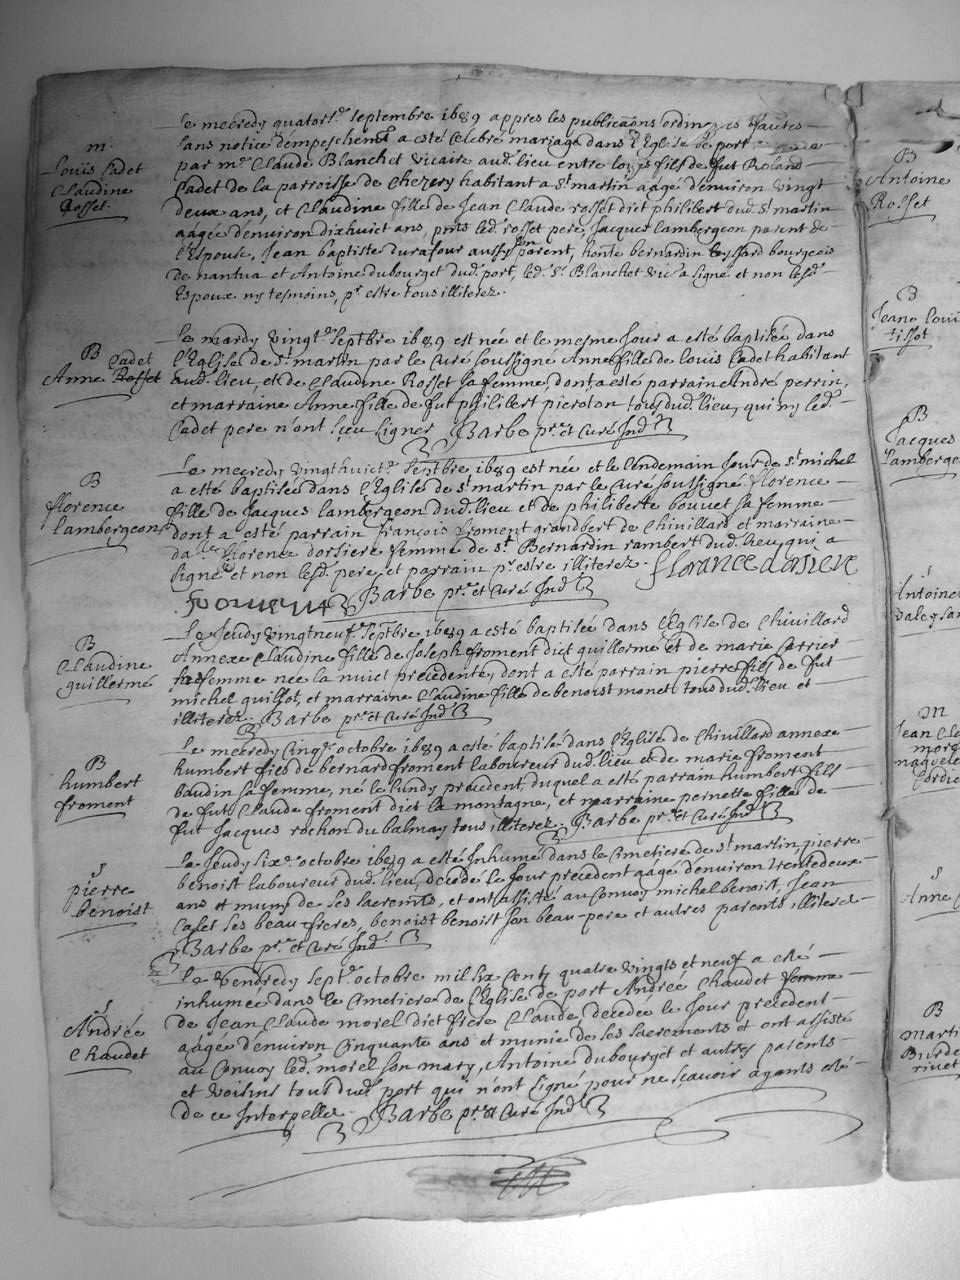 m
Loüis Cadet
Claudine
Rosset
Le mecredy quatorz.e septembre 1689 appres les publicaons ordin faites
sans notice dempeschem.t a esté Celebré mariage dans l'Eglise de port
par m.re Claude Blanchet vicaire aud. lieu entre loüys fils de fut Roland
Cadet de la parroisse de Chezery habitant a S.t martin aagé d'environ vingt
deux ans, et Claudine fille de Jean Claude rosset dict philibert dud. S.t martin
aagée d'environ dixhuict ans, pnts led. rosset pere, Jacques Lambergeon parent de
l'Espouse, Jean baptiste durafour aussy son parent, honte bernardin bourgeois
de nantua et Antoine dubourget dud. port, led. S.r Blanchet vic. a signé et non lesd.
Espoux ny tesmoins, p.r estre tous illiterez.
B
Anne Cadet
Rosset
Le mardy vingt.e septbre 1689 est née et le mesme Jour a esté baptisée dans
l'Eglise de S.t martin par le Curé soussigné Anne fille de Louis Cadet habitant
aud. lieu, et de Claudine Rosset sa femme dont a esté parrain André perrin,
et marraine Anne fille de fut philibert pieroton tous dud. lieu, qui ny led.
Cadet pere n'ont sceu signer Barbe p.re et Curé Ind.
B
florence
Lambergeon
Le mecredy vingthuict.e septbre 1689 est née et le lendemain Jour de S.t michel
a esté baptisée dans l'Eglise de S.t martin par le Curé soussigné florence
fille de Jacques Lambergeon dud. lieu et de philiberte bouvet sa femme
dont a esté parrain francois froment grandbert de Chivillard et marraine
da.lle florence dorsiere femme de S.r Bernardin rambert dud. lieu, qui a
signé et non lesd. pere et parrain p.r estre illiterez. florance dorsiere
froment Barbe p.re et Curé Ind.
B
Claudine
guillermé
Le Jeudy vingtneuf.e septbre 1689 a esté baptisée dans l'Eglise de Chivillard
Annexe Claudine fille de Joseph froment dict guillermé et de marie Carrier
sa femme née la nuict precedente, dont a esté parrain pierre fils de fut
michel guillot, et marraine Claudine fille de benoist monet tous dud. lieu et
illiterez. Barbe p.re et Curé Ind.
B
humbert
froment
Le mecredy cinq.e octobre 1689 a esté baptisé dans l'Eglise de Chivillard annexe
humbert fils de bernard froment laboureur dud. lieu et de marie froment
baudin sa femme, né le lundy precedent, duquel a esté parrain humbert fils
de fut Claude froment dict la montagne, et marraine pernette fille de
fut Jacques rochon du balmay tous illiterez. Barbe p.re et Curé Ind.
S
pierre
benoist
Le Jeudy six.e octobre 1689 a esté Inhumé dans le Cimetiere de S.t martin pierre
benoist laboureur dud. lieu, decedé le Jour precedent aagé d'environ trentedeux
ans et muny de ses sacremts, et ont assisté au Convoy michel benoist, Jean
Calet ses beau freres, benoist benoist son beau-pere et autres parents illiterez
Barbe p.re et Curé Ind.
S
Andrée
Chaudet
Le vendredy sept.e octobre mil six Cents quatre vingts et neuf a esté
inhumée dans le Cimetiere de l'Eglise de port Andrée Chaudet femme
de Jean Claude morel dict frere Claude decedée le Jour precedent
aagée d'environ Cinquante ans et munie de ses sacrements et ont assisté
au Convoy led. morel son mary, Antoine dubourget et autres parents
et voisins tous dud. port qui n'ont signé pour ne scavoir ayants esté
de ce Interpellez. Barbe p.re et Curé Ind.
B
Antoine
Rosset
B
Jeane loui
tissot
B
Jacques
Lamberge
Antoine
m
Jean Cla
S
Anne
B
marti
Burde
rivet